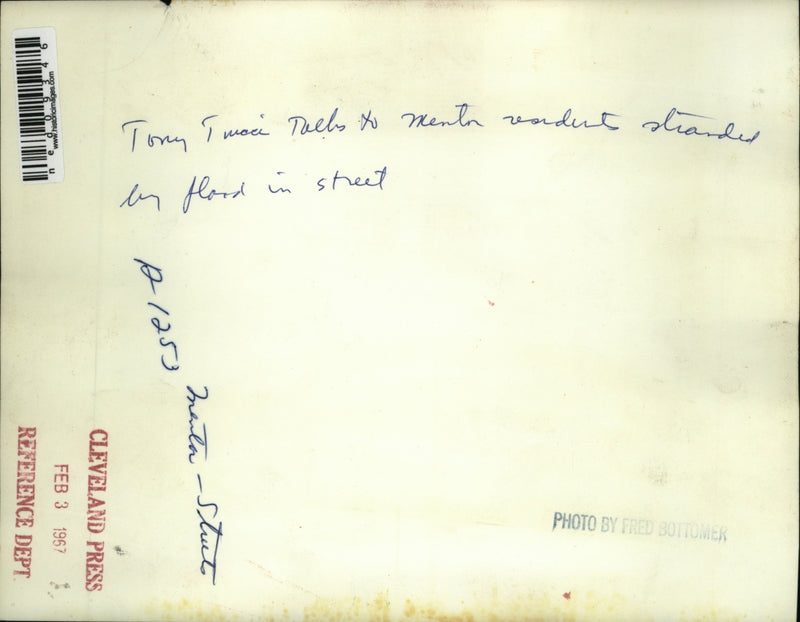 Tony Tucci Talks to Mentor residents stranded
by flood in street
A-1253 Mentor - Streets
CLEVELAND PRESS
FEB 3 1967
REFERENCE DEPT.
PHOTO BY FRED BOTTOMER
www.historicimages.com